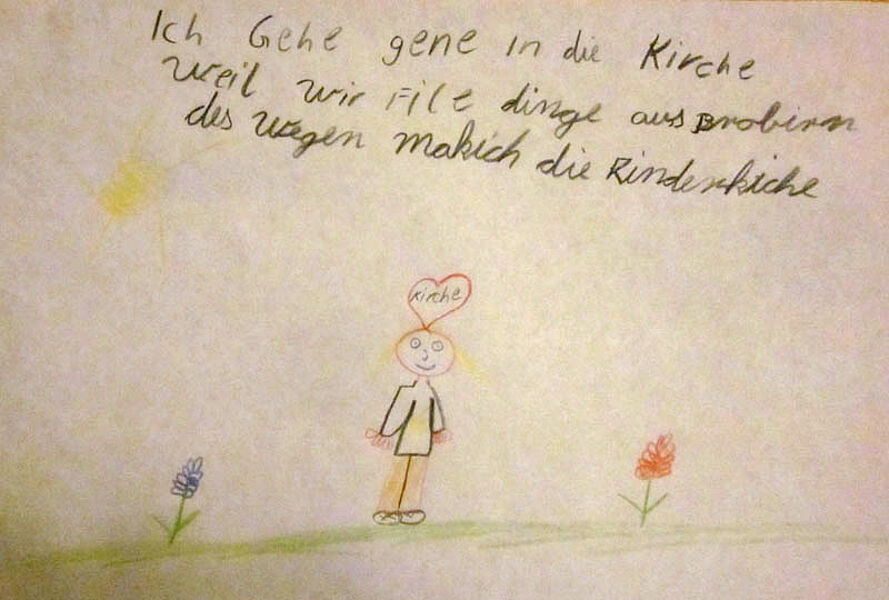 Ich Gehe gene in die Kirche
weil wir File dinge aus Brobirn
des wegen makich die Kinderkiche
Kirche